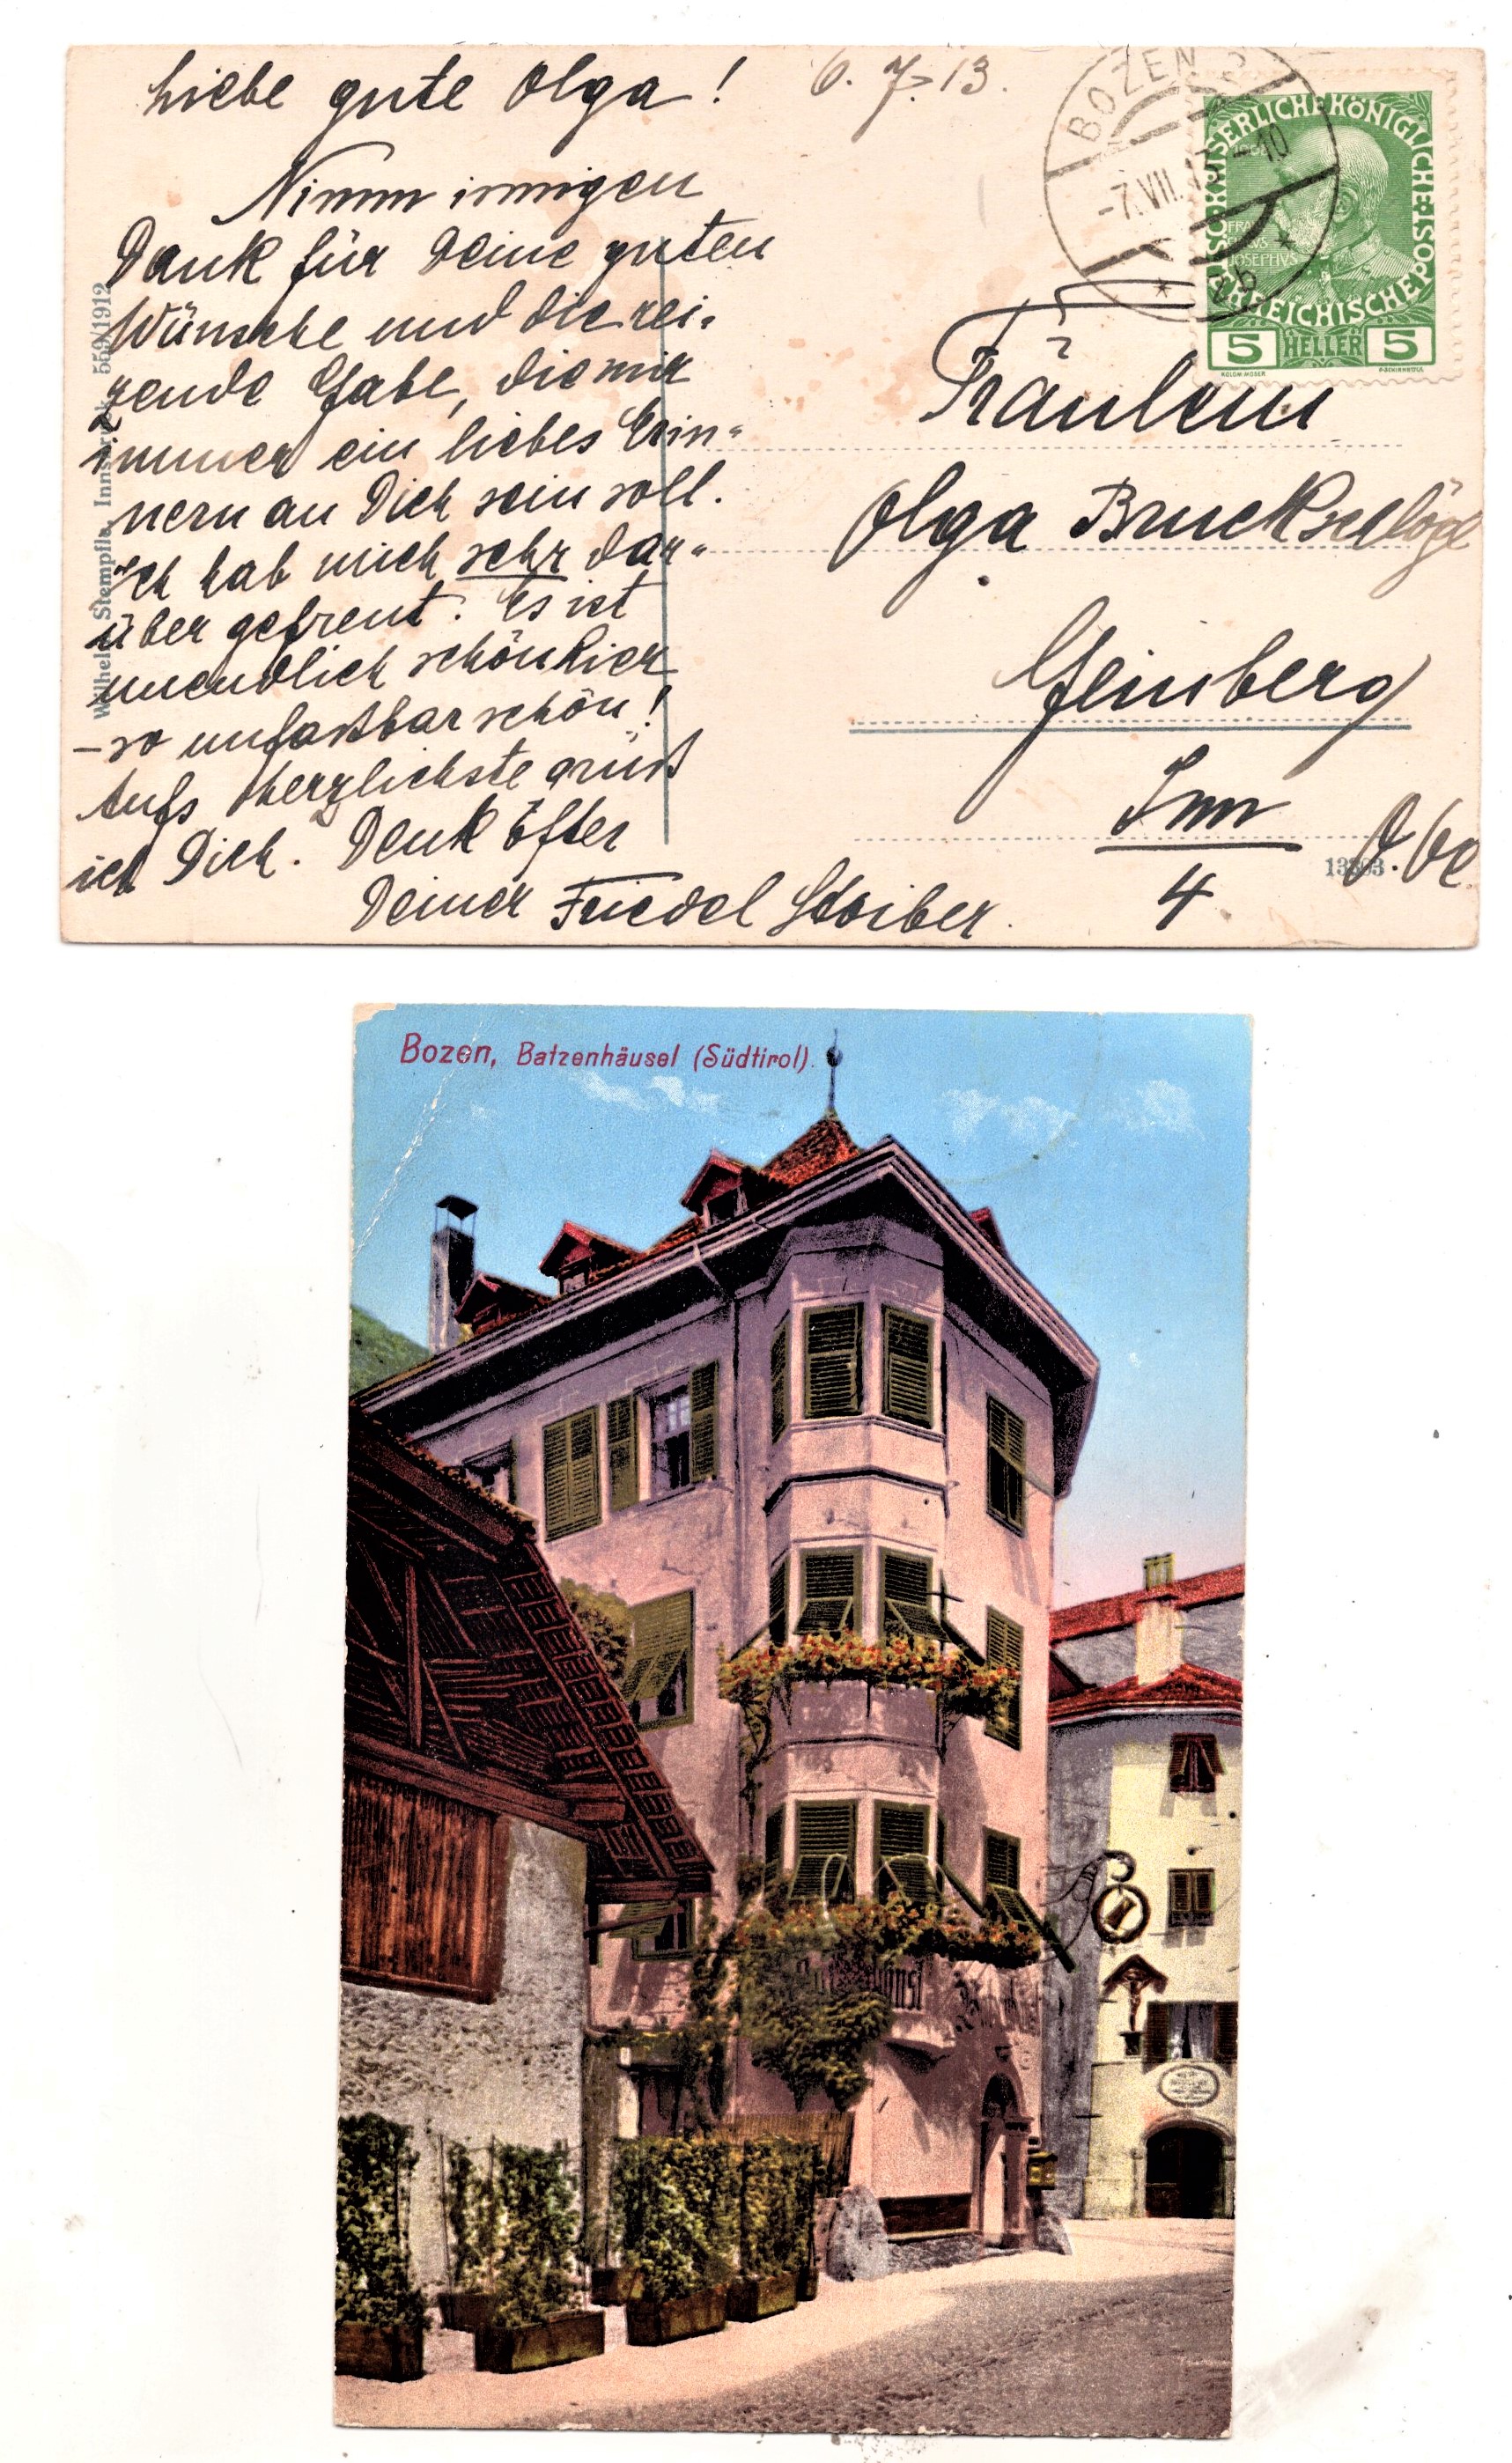 Liebe gute Olga!
6. 7. 13.
Nimm innigen
Dank für Deine guten
Wünsche und die rei-
zende Gabe, die mir
immer ein liebes Erin-
nern an Dich sein soll.
Ich hab mich sehr dar-
über gefreut. Es ist
unendlich schön hier
– so unfaßbar schön!
Aufs herzlichste grüßt
ich Dich. Denk öfter
Deiner Friedel Stoiber.
BOZEN 2
-7.VII.13-10
* 9b *
KAISERLICHE KÖNIGLICHE
ÖSTERREICHISCHE POST
FRANCISCVS JOSEPHVS
5 HELLER 5
KOLOM. MOSER
F. SCHIRNBÖCK
Fräulein
Olga Bruckschlögl
Geinberg
Inn
4
O.Oe.
13393
Wilhelm Stempfle, Innsbruck 559/1912
Bozen, Batzenhäusel (Südtirol).